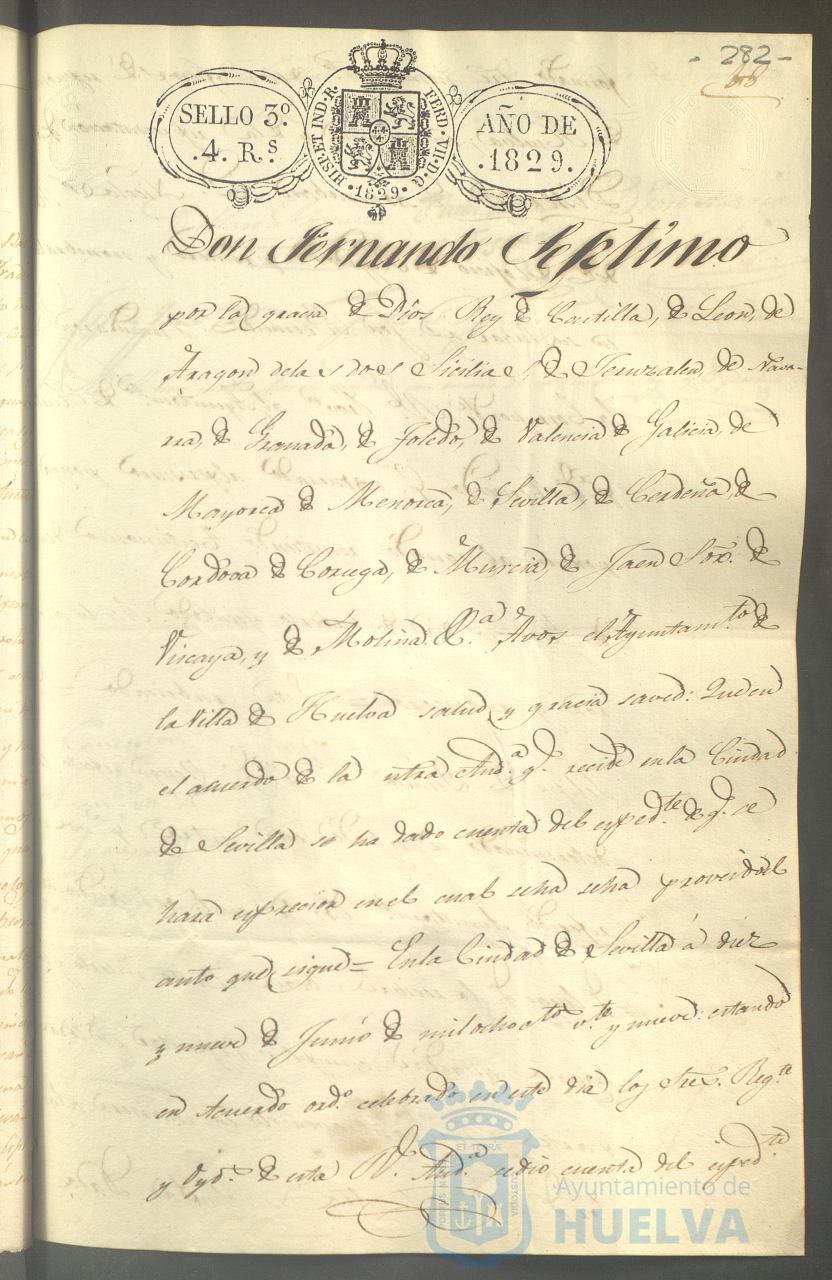 - 282 -
68
SELLO 3º
.4. Rˢ
HISP. ET IND. R. FERD. VII. D. G. 1829.
AÑO DE
.1829.
Don Fernando Septimo
por la gracia de Dios Rey de Castilla, de Leon, de
Aragon dela s dos Sicilias, de Jeruzalen, de Nava-
rra, de Granada, de Toledo, de Valencia de Galicia, de
Mayorca de Menorca, de Sevilla, de Cerdeña, de
Cordova de Coruga, de Murcia, de Jaen Sor. de
Viscaya, y de Molina &ª Avos el Ayuntamᵗᵒ de
la Villa de Huelva salud y gracia saved: Que en
el acuerdo de la ntra Audª q. recide en la Ciudad
de Sevilla se ha dado cuenta del expedᵗᵉ de q. se
hara exprecion en el cual seha seha proveido el
auto que sigue= En la Ciudad de Sevilla á diez
y nueve de Junio de mil ochotos vᵗᵉ y nueve: estando
en Acuerdo ordº celebrado en este dia los Sres. Regᵗᵉ
y Oydˢ de esta Rˡ Audª sedio cuenta del expedᵗᵉ
ET TERRAE
CUSTODIA
Ayuntamiento de
HUELVA